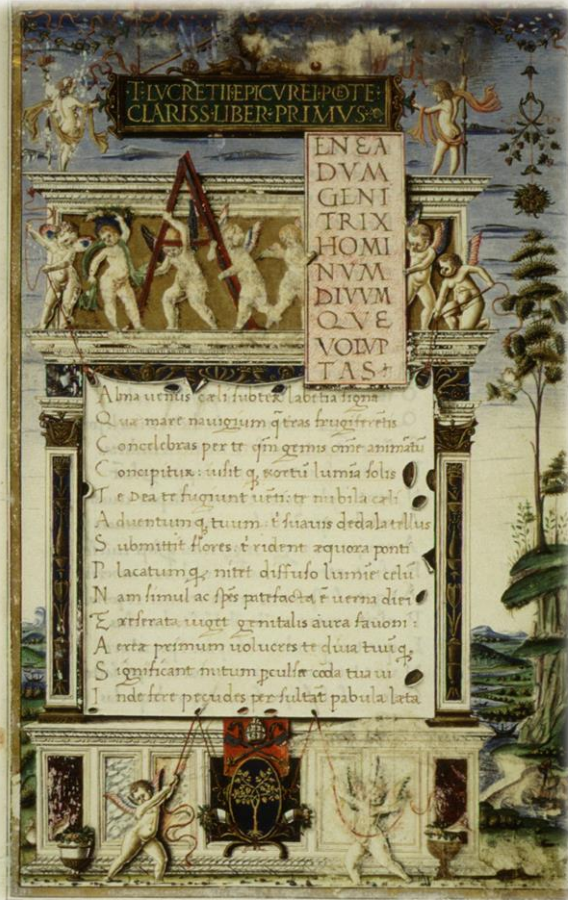 T·LVCRETII·EPICVREI·POETE·
CLARISS·LIBER·PRIMVS·
A
ENEA
DVM
GENI
TRIX
HOMI
NVM
DIVVM
QVE
VOLVP
TAS
Alma uenus cæli subter labētia signa
Quæ mare nauigium q̄ terras frugiferētis
Concelebras per te qm̄ genus om̄e animātū
Concipitur: uisit q; exortū lumīa solis
Te Dea te fugiunt uēti: te nubila cæli
Aduentum q; tuum: t̄ suauis dedala tellus
Submittit flores: t̄ rident æquora ponti
Placatum q; nitet diffuso lumīe cælū
Nam simul ac spēs patefacta ē uerna diei
Et reserata uiget genitalis aura fauoni:
Aeriæ primum uolucres te diua tuū q;
Significant initum pculsæ corda tua ui
Inde fere pecudes persultāt pabula læta